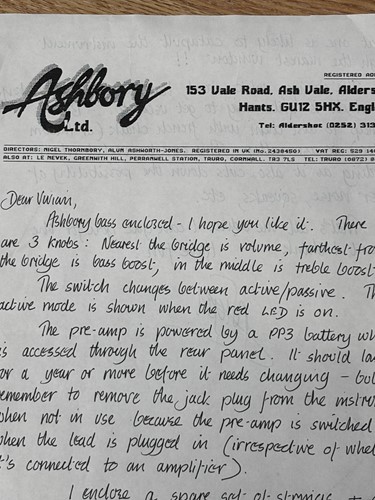 Ashbory
Ltd.
REGISTERED
153 Vale Road, Ash Vale, Alders
Hants. GU12 5HX. Engl
Tel: Aldershot (0252) 313
DIRECTORS: NIGEL THORNBORY, ALUN ASHWORTH-JONES. REGISTERED IN UK (No.2438450) VAT REG: 529 14
ALSO AT: LE NEVEK, GREENWITH HILL, PERRANWELL STATION, TRURO, CORNWALL. TR3 7LS TEL: TRURO (0872) 8
Dear Vivian,
Ashbory bass enclosed - I hope you like it. There
are 3 knobs: Nearest the bridge is volume, farthest fro
the bridge is bass boost, in the middle is treble boost
The switch changes between active/passive. Th
active mode is shown when the red LED is on.
The pre-amp is powered by a PP3 battery wh
is accessed through the rear panel. It should la
or a year or more before it needs changing - but
remember to remove the jack plug from the instru
when not in use because the pre-amp is switched
when the lead is plugged in (irrespective of whet
it's connected to an amplifier).
I enclose a spare set of strings